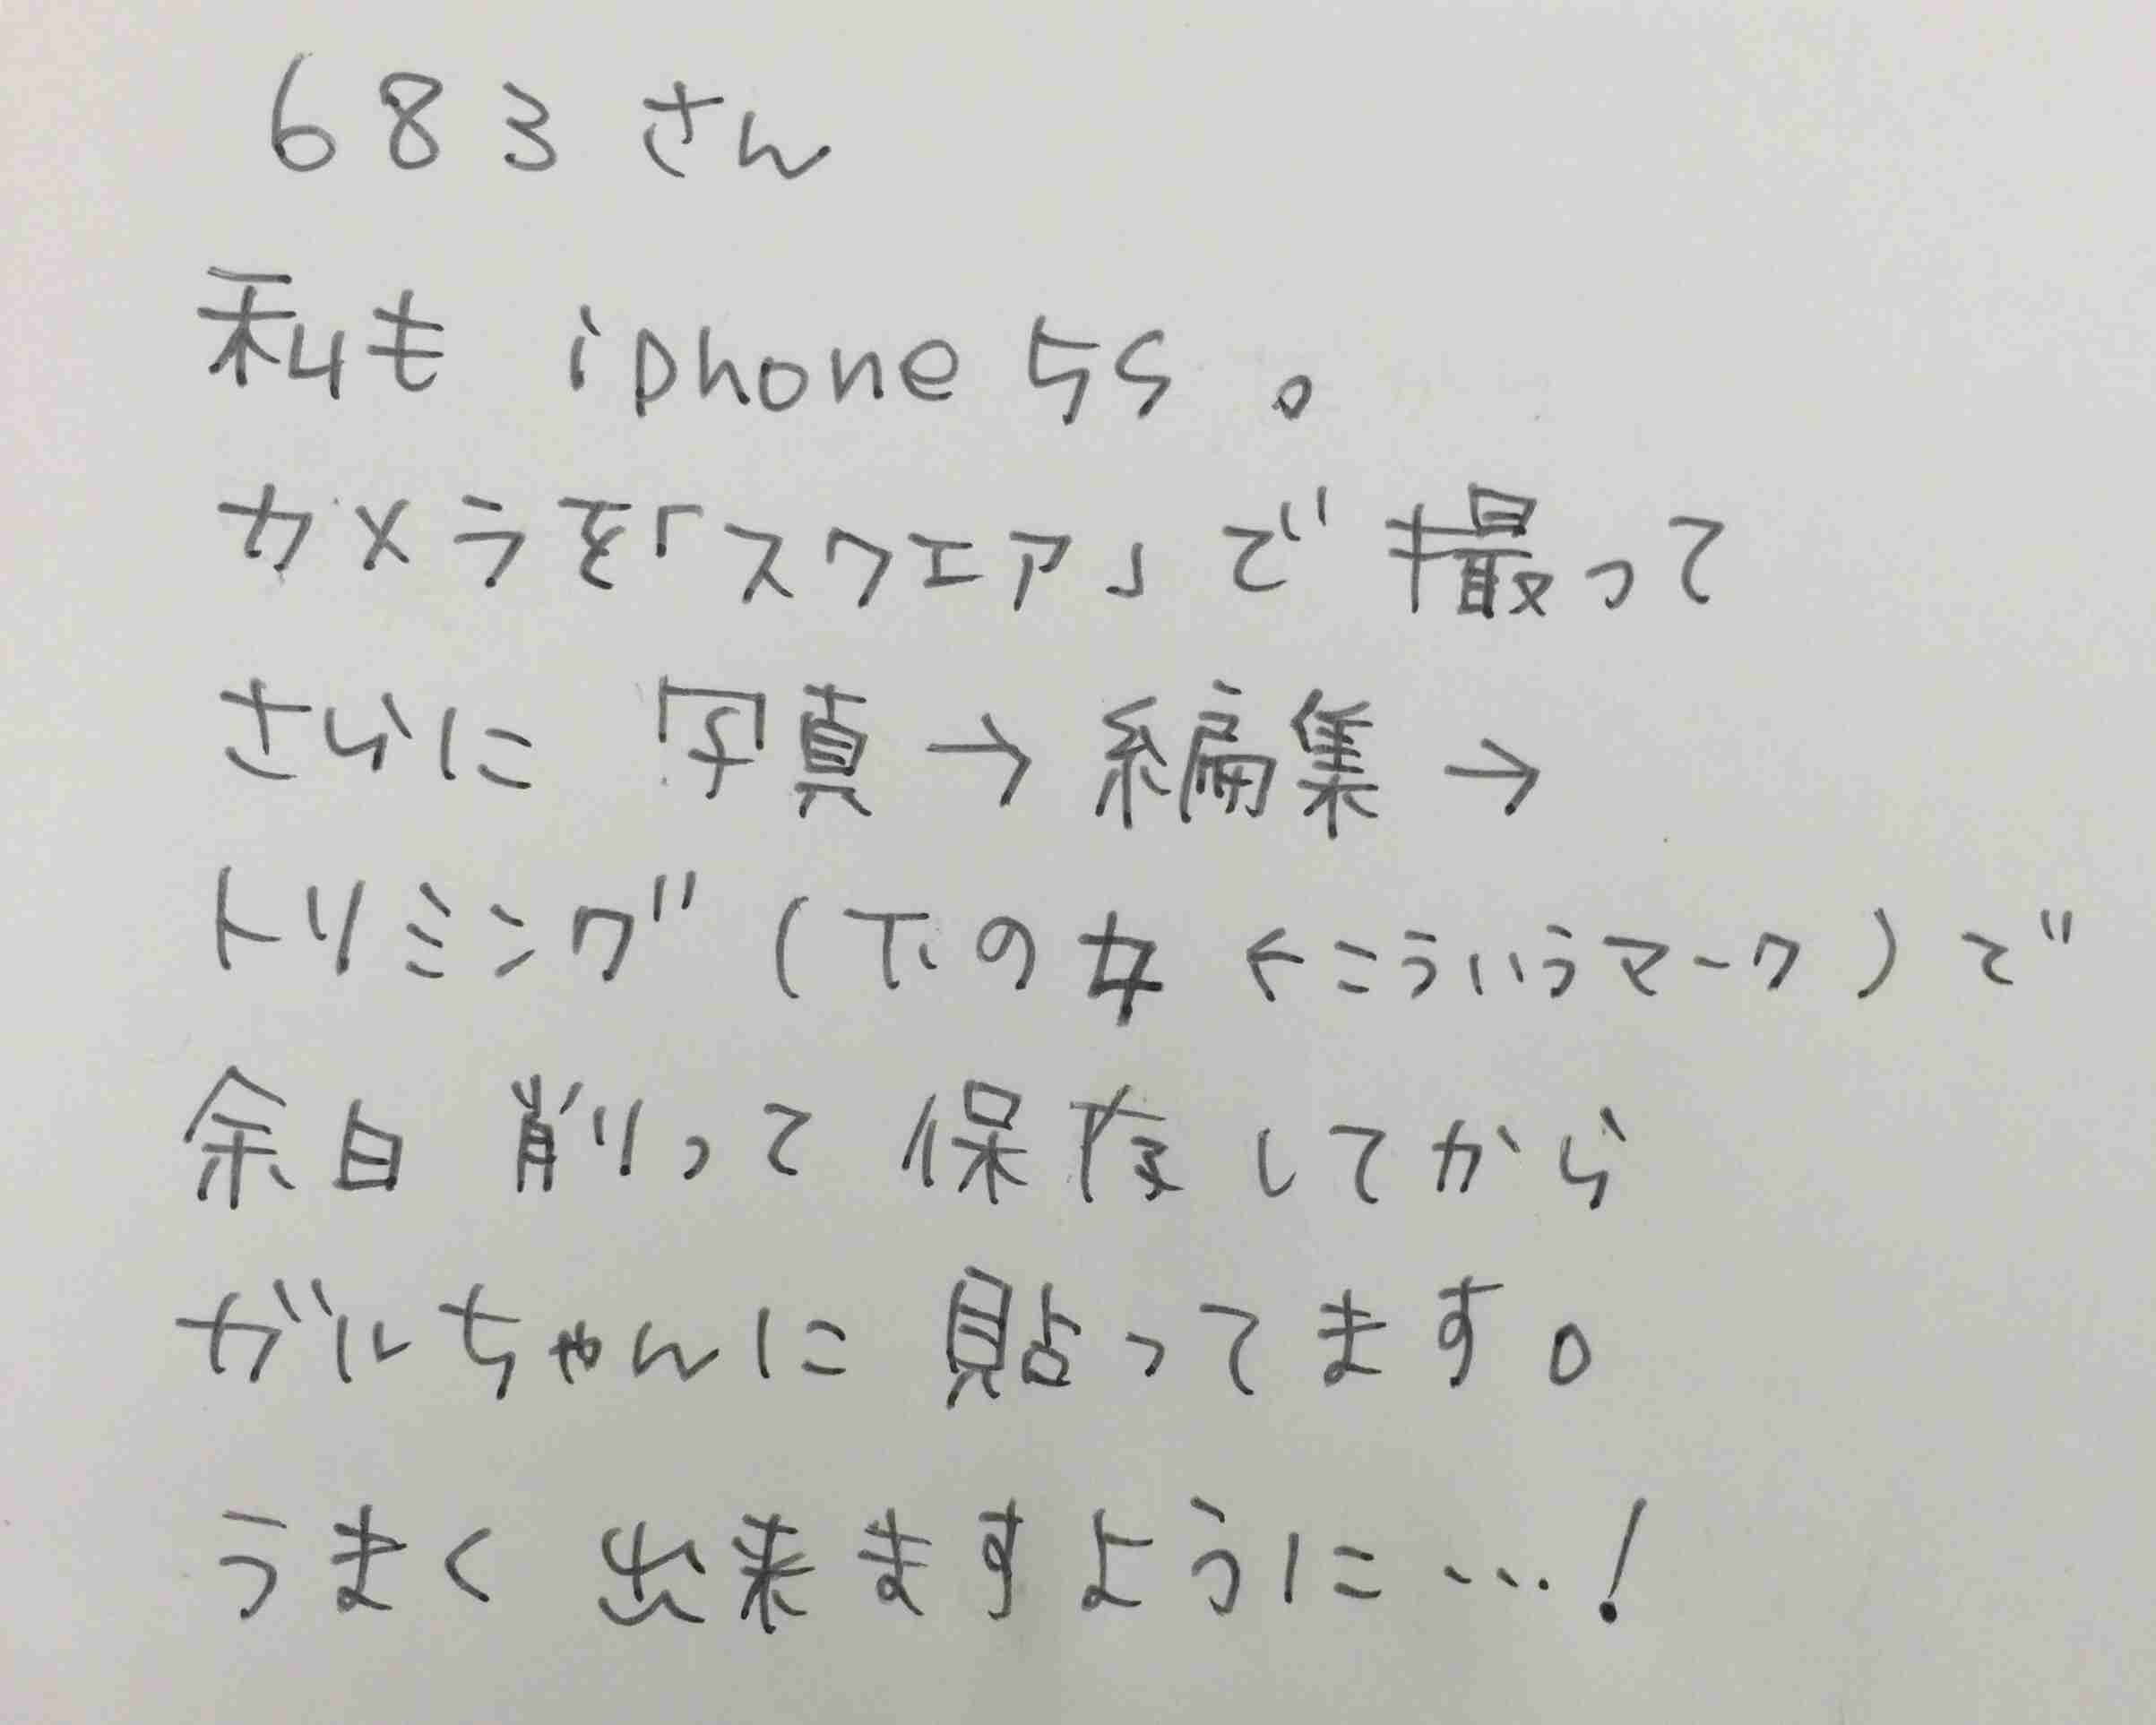 683さん
私も iphone 5s。
カメラを「スクエア」で 撮って
さらに 写真→編集→
トリミング(下の ←こういうマーク)で
余白 削って 保存してから
ガルちゃんに 貼ってます。
うまく 出来ますように…!